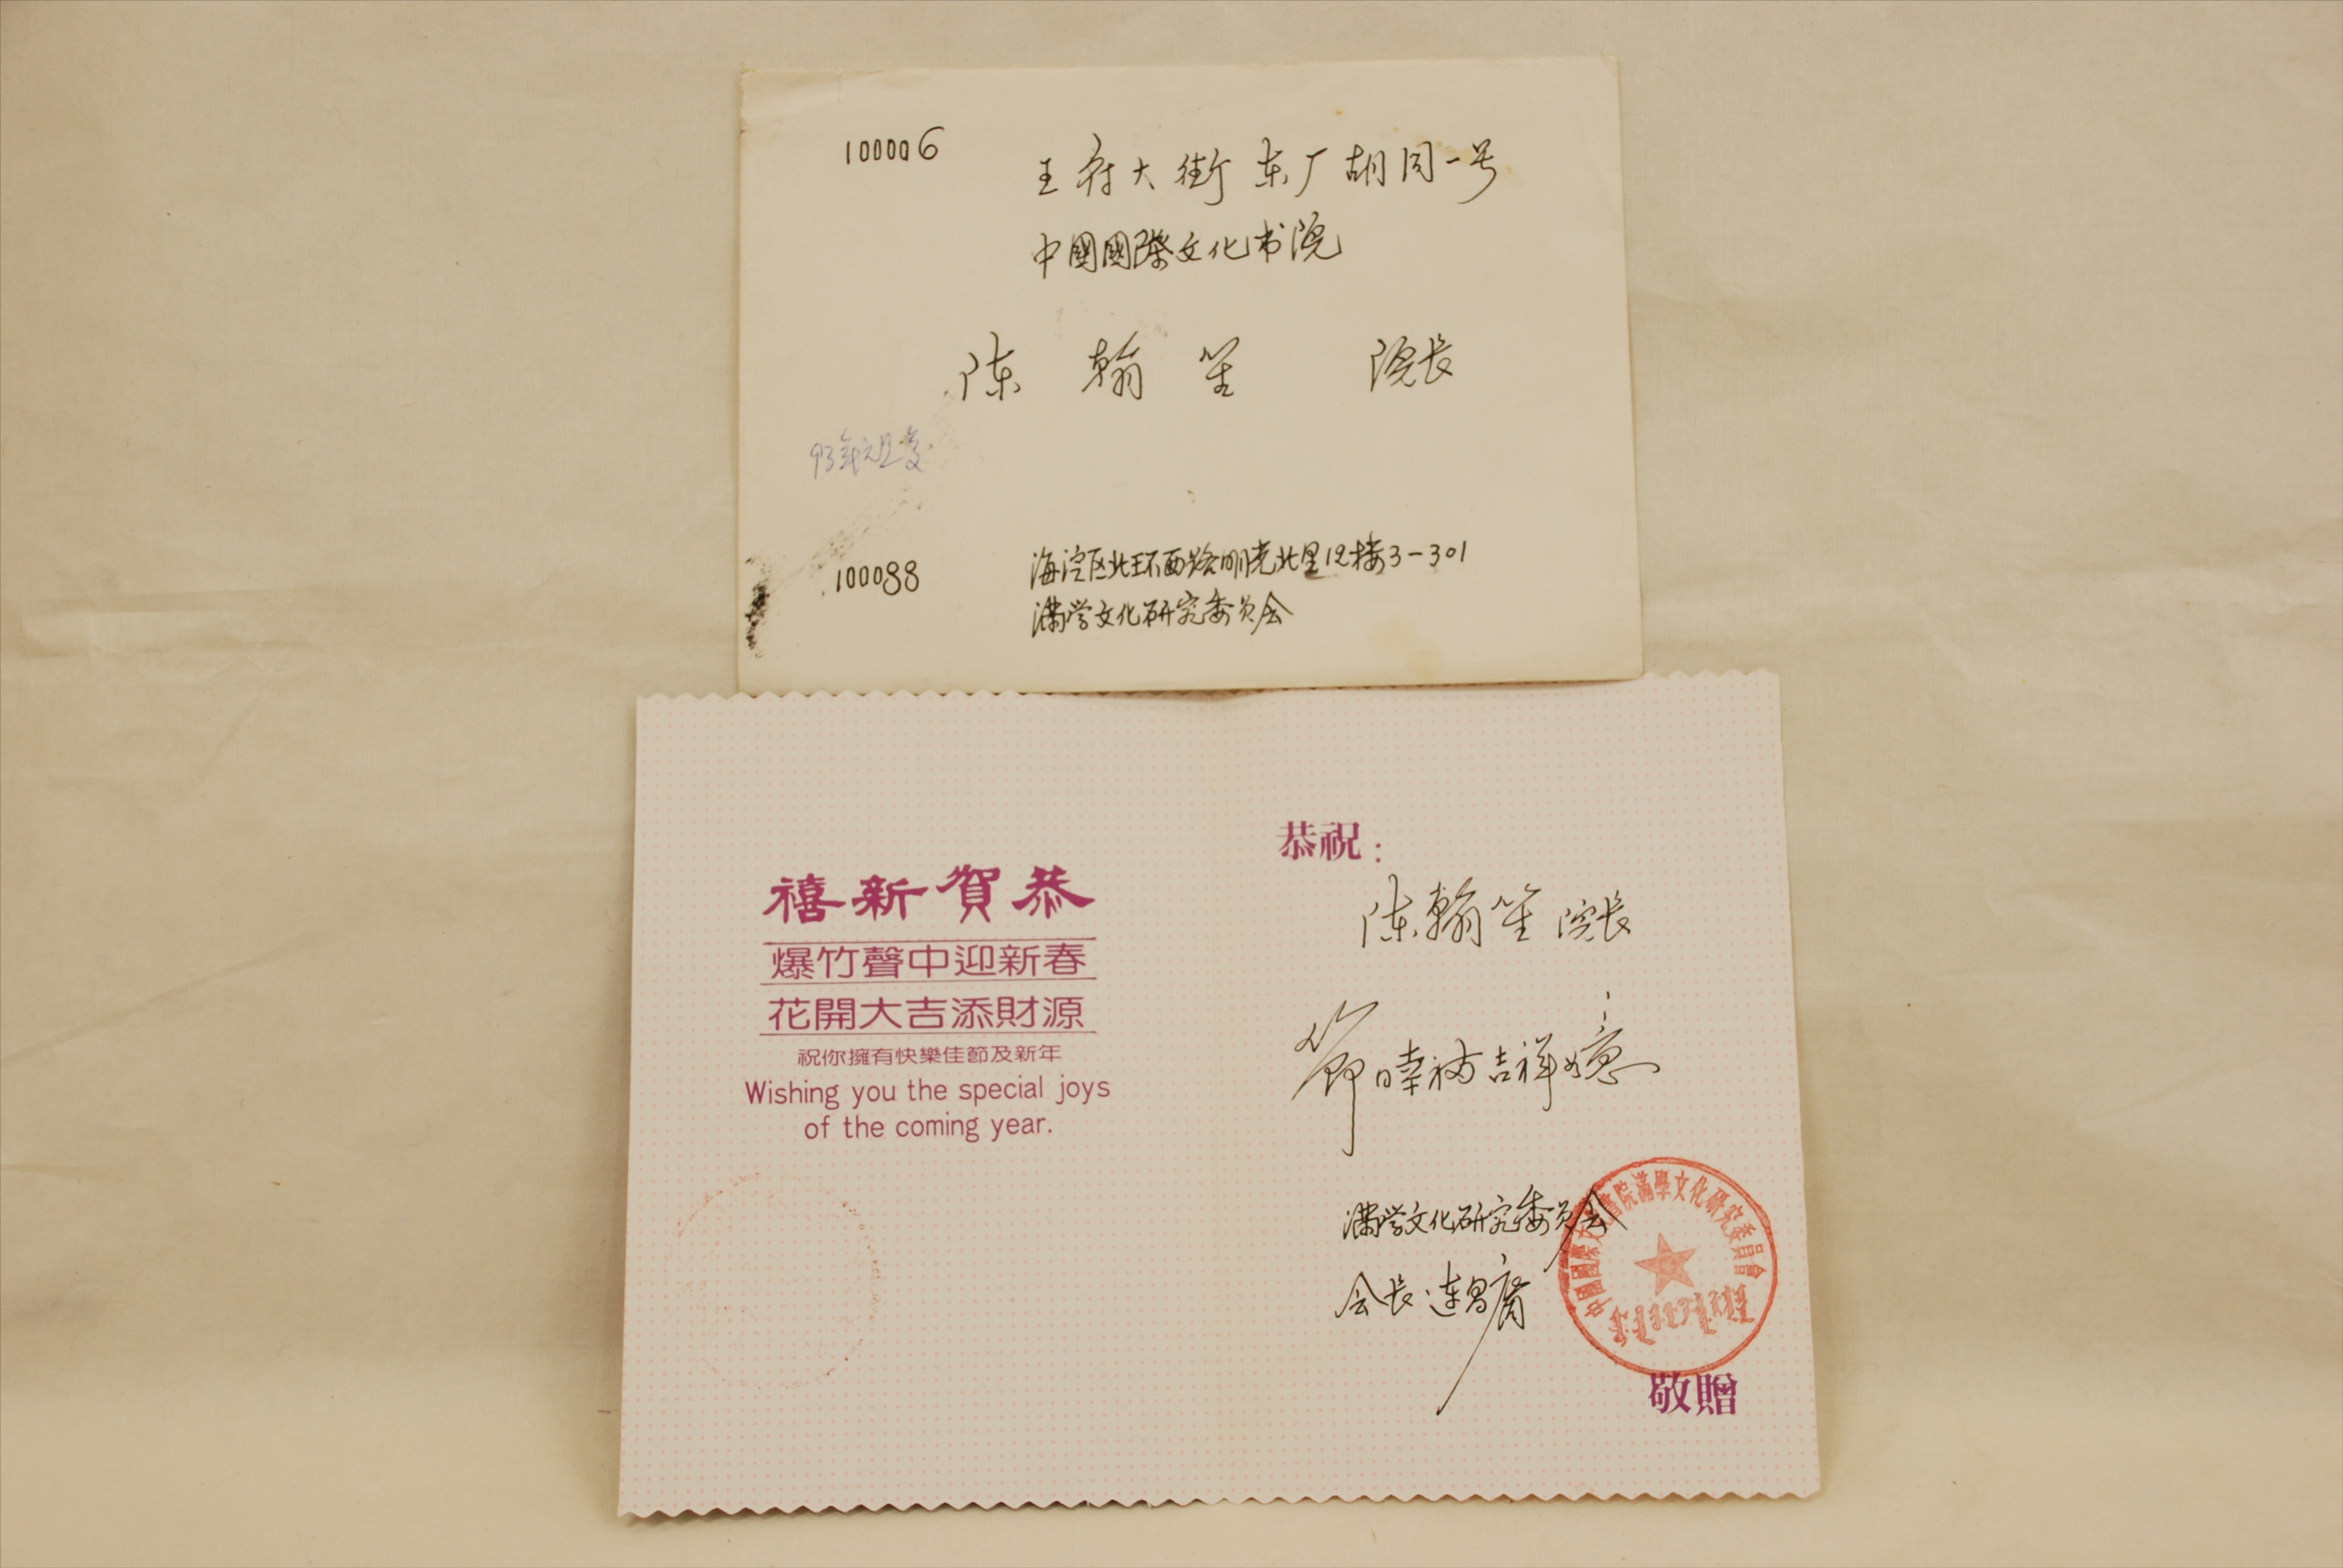 100006
王府大街东厂胡同一号
中國國際文化书院
陈翰笙 院长
93年元旦复
100088
海淀区北环西路明光北里12楼3-301
满学文化研究委员会
恭賀新禧
爆竹聲中迎新春
花開大吉添財源
祝你擁有快樂佳節及新年
Wishing you the special joys
of the coming year.
恭祝：
陈翰笙院长
节日幸福吉祥如意
满学文化研究委员会
会长 连昌裔
中國國際文化書院滿學文化研究委員會
敬贈